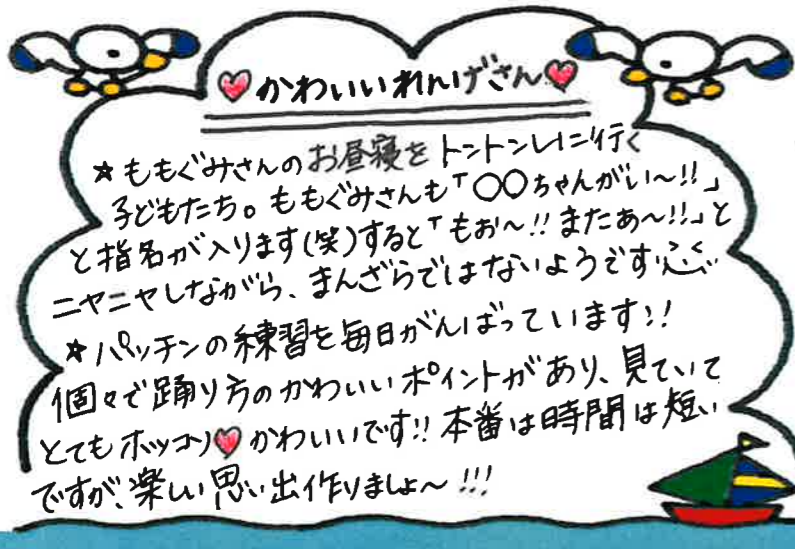 ♥かわいいれんげさん♥
☆ももぐみさんのお昼寝をトントンしに行く
子どもたち。ももぐみさんも「〇〇ちゃんがい～!!」
と指名が入ります(笑)すると「もお～!!またあ～!!」と
ニヤニヤしながら、まんざらではないようです
☆パッチンの練習を毎日がんばっています!!
個々で踊り方のかわいいポイントがあり、見ていて
とてもホッコリ♥かわいいです!!本番は時間は短い
ですが、楽しい思い出作りましょ～!!!